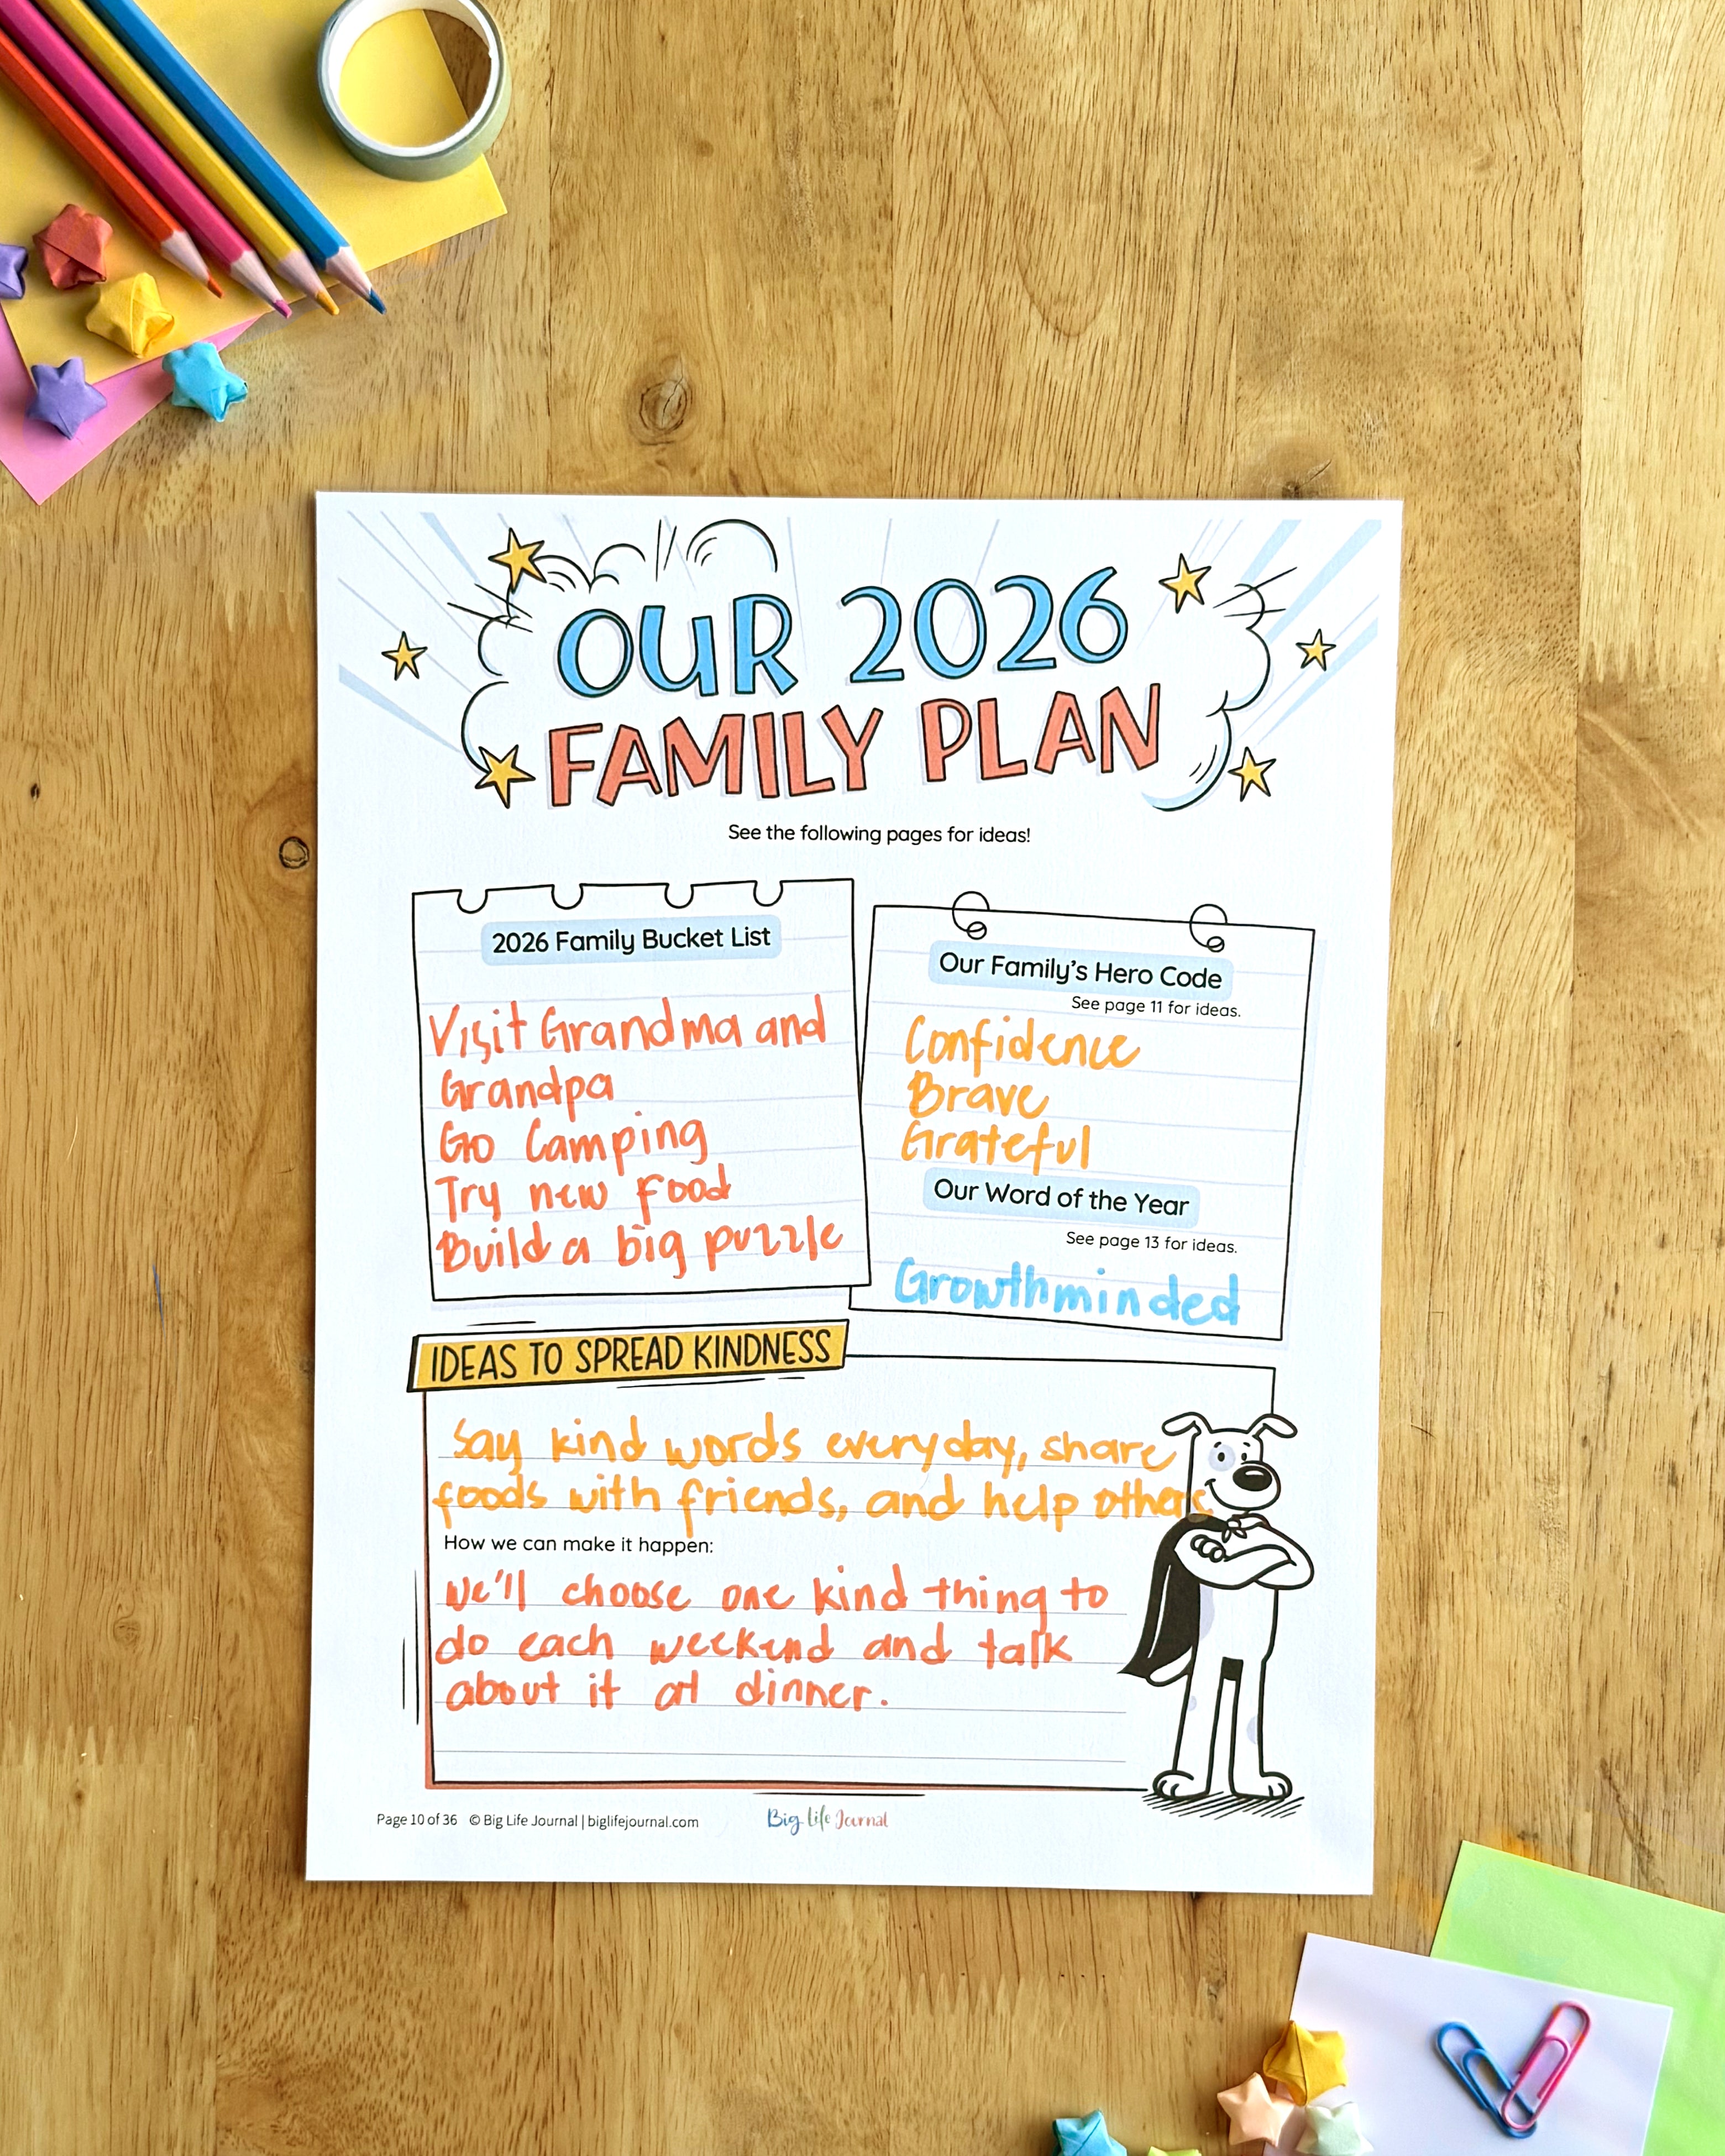 OUR 2026
FAMILY PLAN
See the following pages for ideas!
2026 Family Bucket List
Visit Grandma and
Grandpa
Go Camping
Try new food
Build a big puzzle
Our Family's Hero Code
See page 11 for ideas.
Confidence
Brave
Grateful
Our Word of the Year
See page 13 for ideas.
Growthminded
IDEAS TO SPREAD KINDNESS
Say kind words everyday, share
foods with friends, and help others
How we can make it happen:
We'll choose one kind thing to
do each weekend and talk
about it at dinner.
Page 10 of 36 © Big Life Journal | biglifejournal.com
Big Life Journal